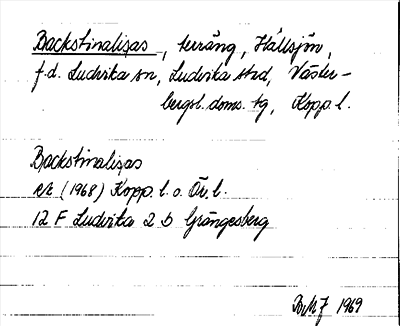 Backstinalisas, terräng, Hällsjön,
f.d. Ludvika sn, Ludvika stad, Väster-
bergsl. doms. tg, Kopp. l.
Backstinalisas
ek (1968) Kopp. l. o. Ör. l.
12 F Ludvika 2 b Grängesberg
1969